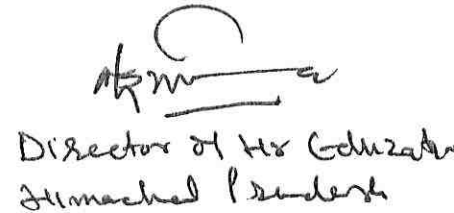 Director of Hr Educatn
Himachal Pradesh